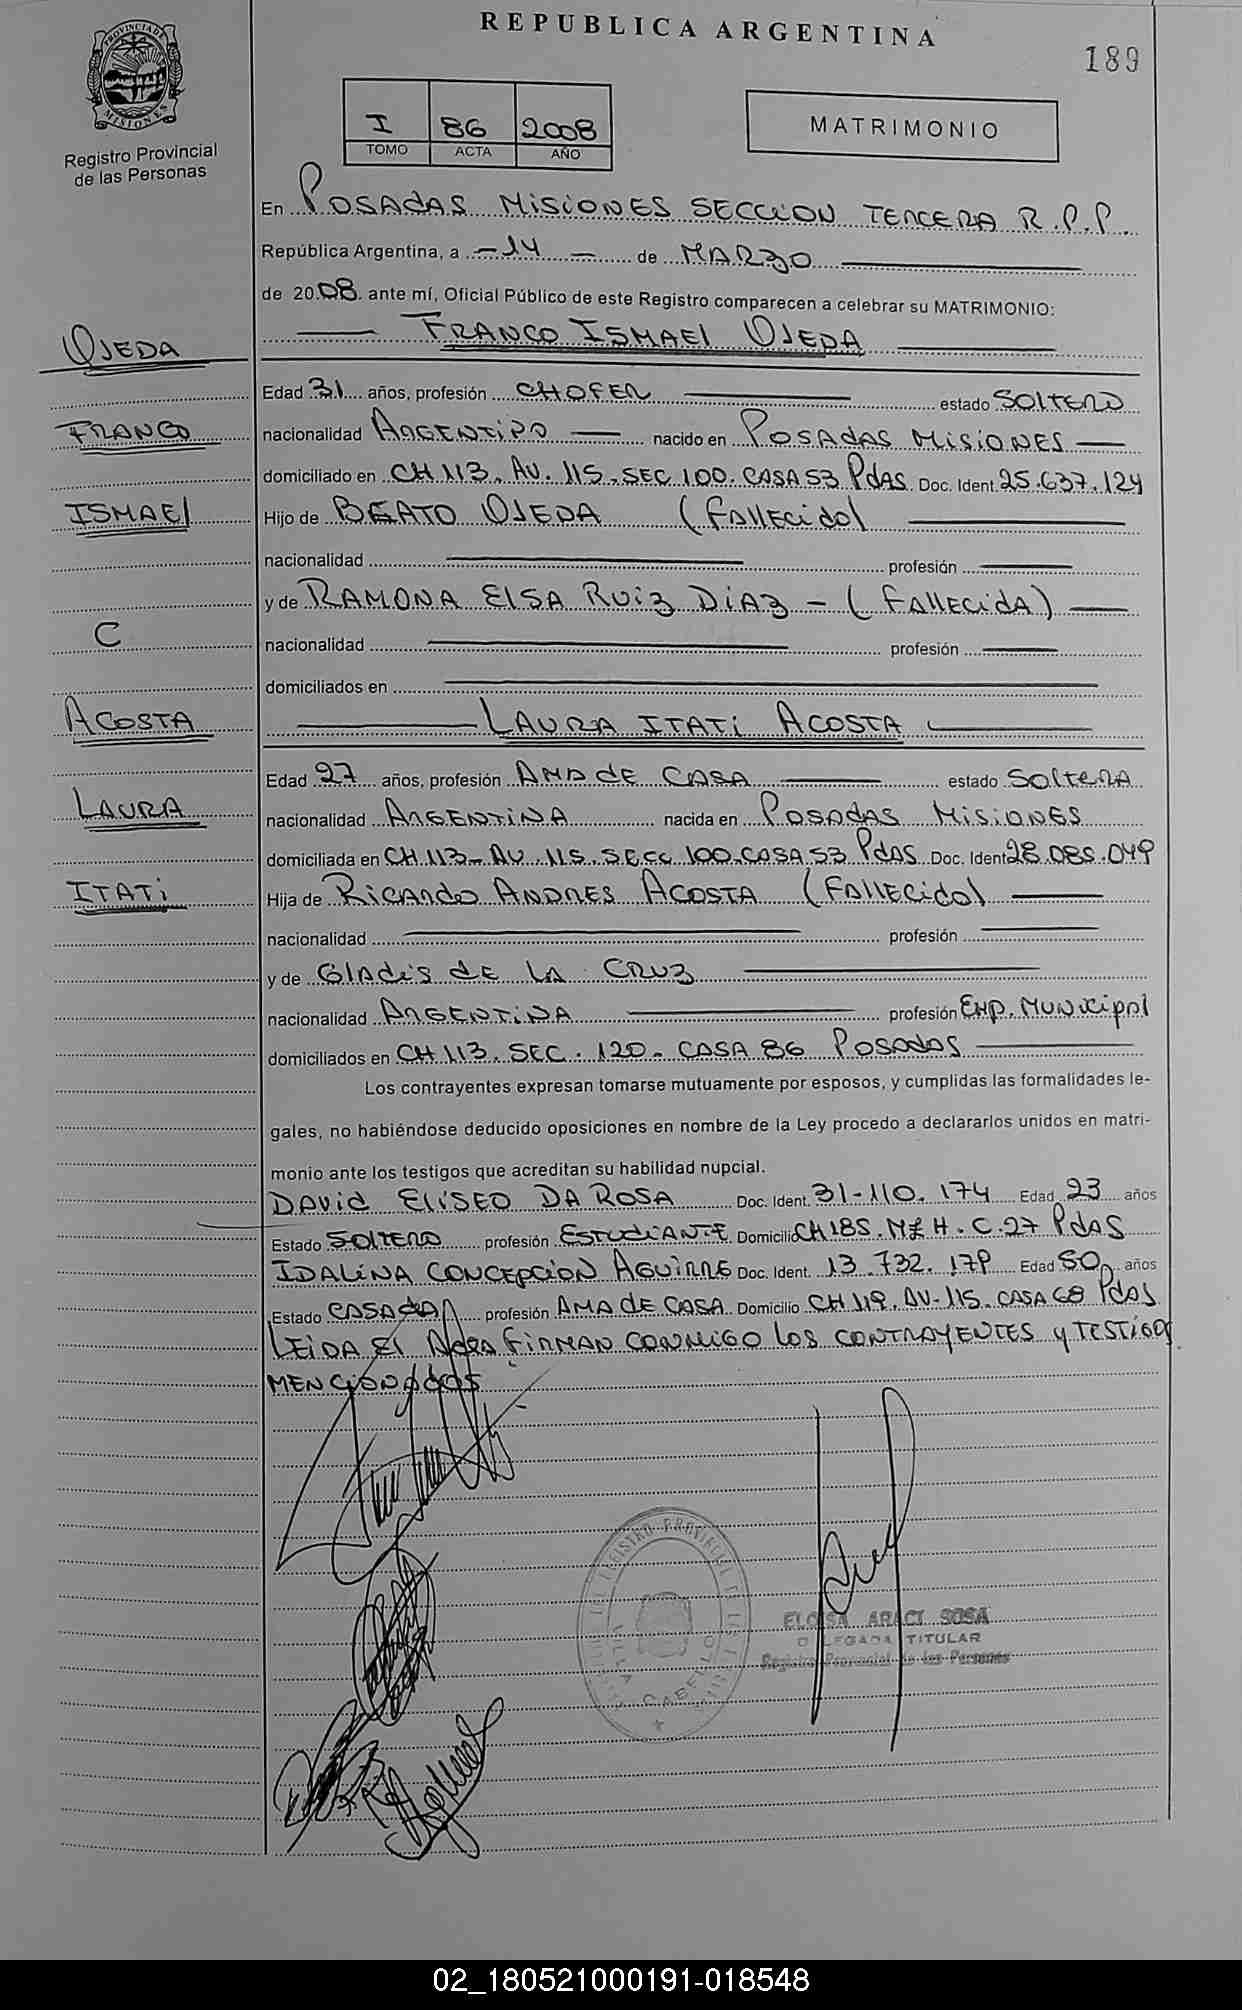 REPUBLICA ARGENTINA
189
PROVINCIA DE MISIONES
Registro Provincial
de las Personas
I 86 2008
TOMO ACTA AÑO
MATRIMONIO
En POSADAS MISIONES SECCION TERCERA R.P.P.
República Argentina, a - 14 - de MARZO
de 2008 ante mí, Oficial Público de este Registro comparecen a celebrar su MATRIMONIO:
FRANCO ISMAEL OJEDA
OJEDA
Edad 31 años, profesión CHOFER estado SOLTERO
FRANCO
nacionalidad ARGENTINO nacido en POSADAS MISIONES
domiciliado en CH 113. AV. 115. SEC 100. CASA 53 PdAS. Doc. Ident. 25.637.124
ISMAEL
Hijo de BEATO OJEDA (FALLECIDO)
nacionalidad profesión
y de RAMONA ELSA RUIZ DIAZ - (FALLECIDA)
C
nacionalidad profesión
domiciliados en
ACOSTA
LAURA ITATI ACOSTA
Edad 27 años, profesión AMA DE CASA estado SOLTERA
LAURA
nacionalidad ARGENTINA nacida en POSADAS MISIONES
domiciliada en CH 113 - AV 115. SECC 100. CASA 53 PdAS Doc. Ident 28.085.049
ITATI
Hija de RICARDO ANDRES ACOSTA (FALLECIDO)
nacionalidad profesión
y de GLADIS DE LA CRUZ
nacionalidad ARGENTINA profesión EMP. MUNICIPAL
domiciliados en CH 113. SEC. 120. CASA 86 POSADAS
Los contrayentes expresan tomarse mutuamente por esposos, y cumplidas las formalidades le-
gales, no habiéndose deducido oposiciones en nombre de la Ley procedo a declararlos unidos en matri-
monio ante los testigos que acreditan su habilidad nupcial.
DAVID ELISEO DA ROSA Doc. Ident. 31-110.174 Edad 23 años
Estado SOLTERO profesión ESTUDIANTE Domicilio CH 185. Mz H. C. 27 PdAS
IDALINA CONCEPCION AGUIRRE Doc. Ident. 13.732.179 Edad 50 años
Estado CASADA profesión AMA DE CASA Domicilio CH 119. AV-115. CASA 68 PdAS
LEIDA EL Acta FIRMAN CONMIGO LOS CONTRAYENTES y TESTIGOS
MENCIONADOS
ELOISA ARACI SOSA
DELEGADA TITULAR
Registro Provincial de las Personas
02_180521000191-018548